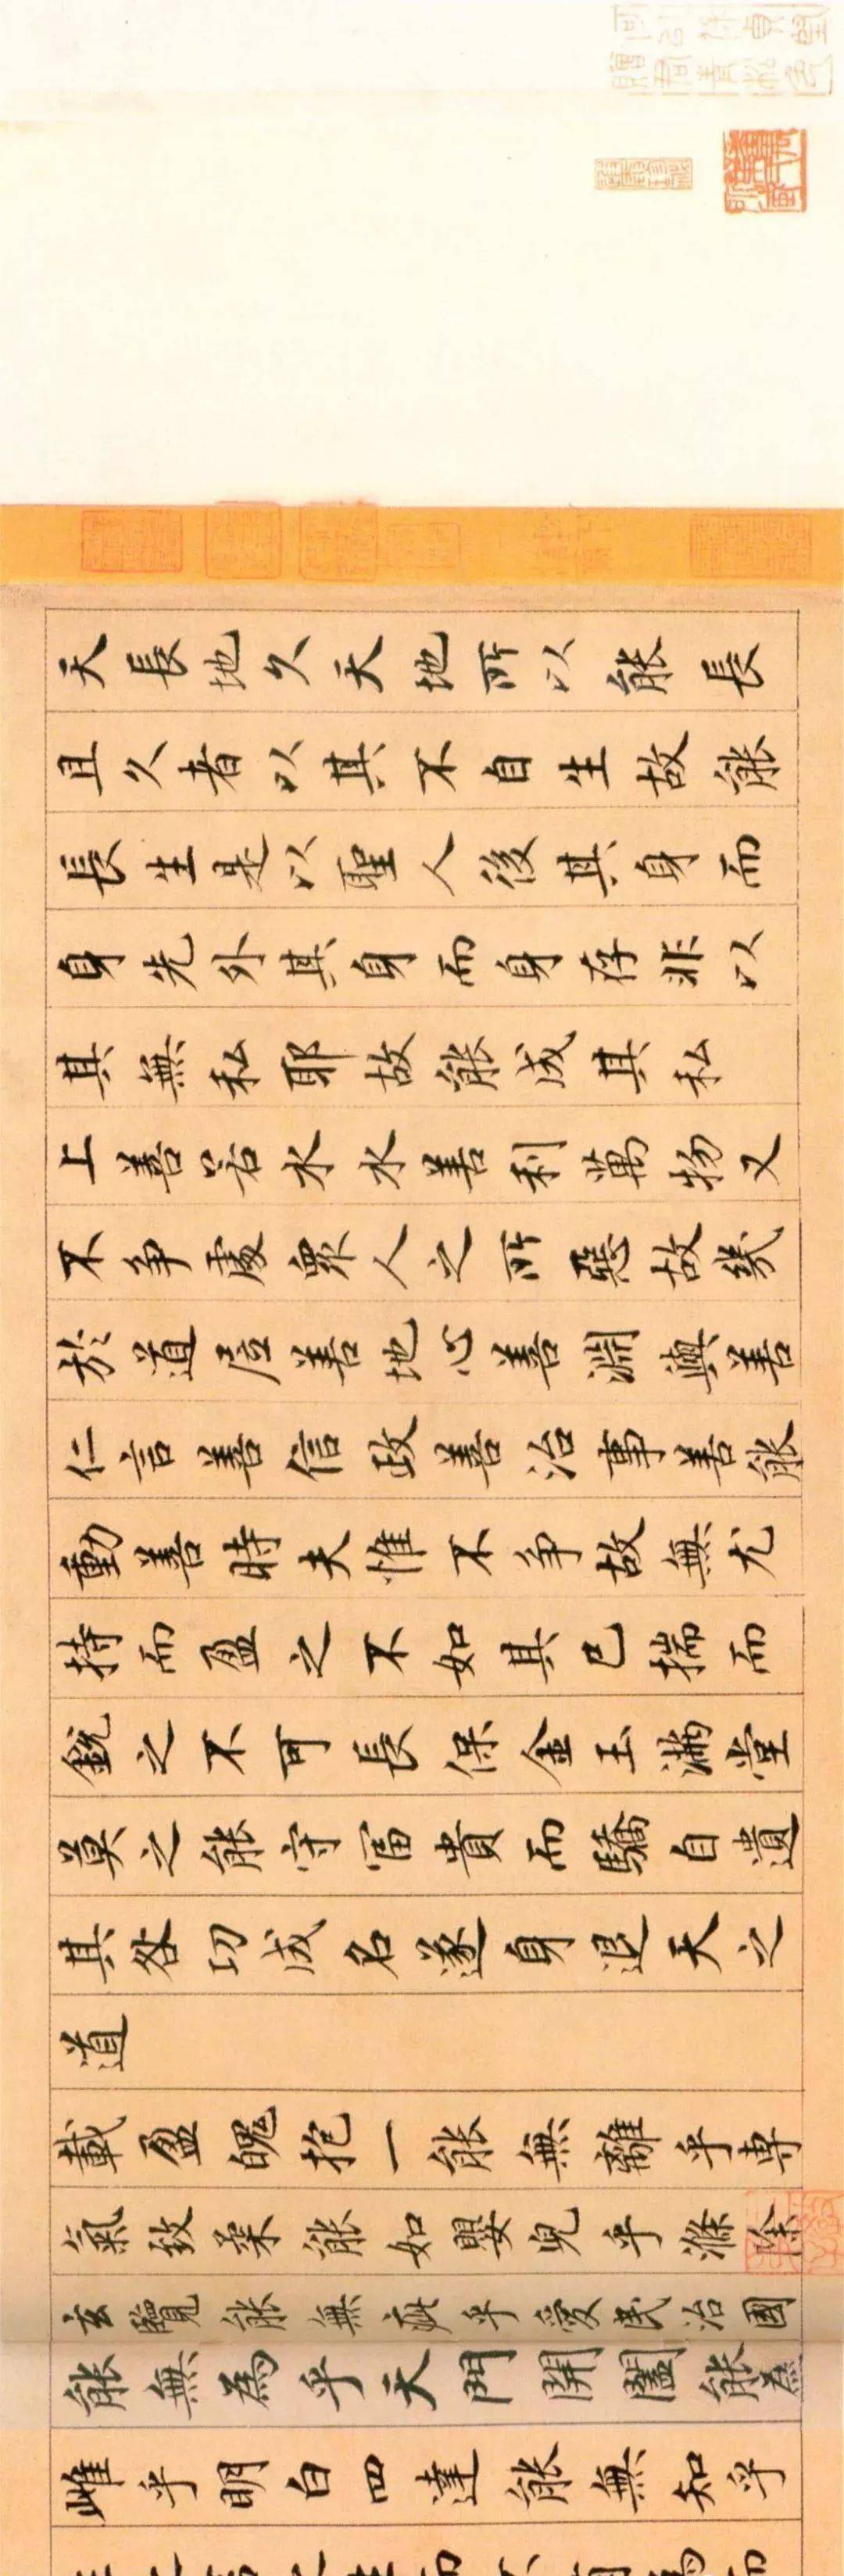 天長地久天地所以能長
且久者以其不自生故能
長生是以聖人後其身而
身先外其身而身存非以
其無私耶故能成其私
上善若水水善利萬物又
不爭處衆人之所惡故幾
於道居善地心善淵與善
仁言善信政善治事善能
動善時夫惟不爭故無尤
持而盈之不如其已揣而
銳之不可長保金玉滿堂
莫之能守富貴而驕自遺
其咎功成名遂身退天之
道
載盈魄抱一能無離乎專
氣致柔能如嬰兒乎滌除
玄覽能無疵乎愛民治國
能無為乎天門開闔能無
雌乎明白四達能無知乎